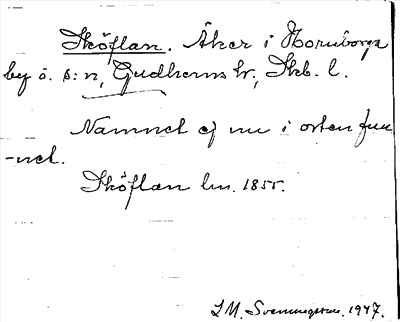 Sköflan. Åker i Hornborga
by o. s:n, Gudhems hr., Skb. l.
Namnet ej nu i orten fun
-net.
Sköflan lm. 1855.
I.M. Svenningstun. 1947.